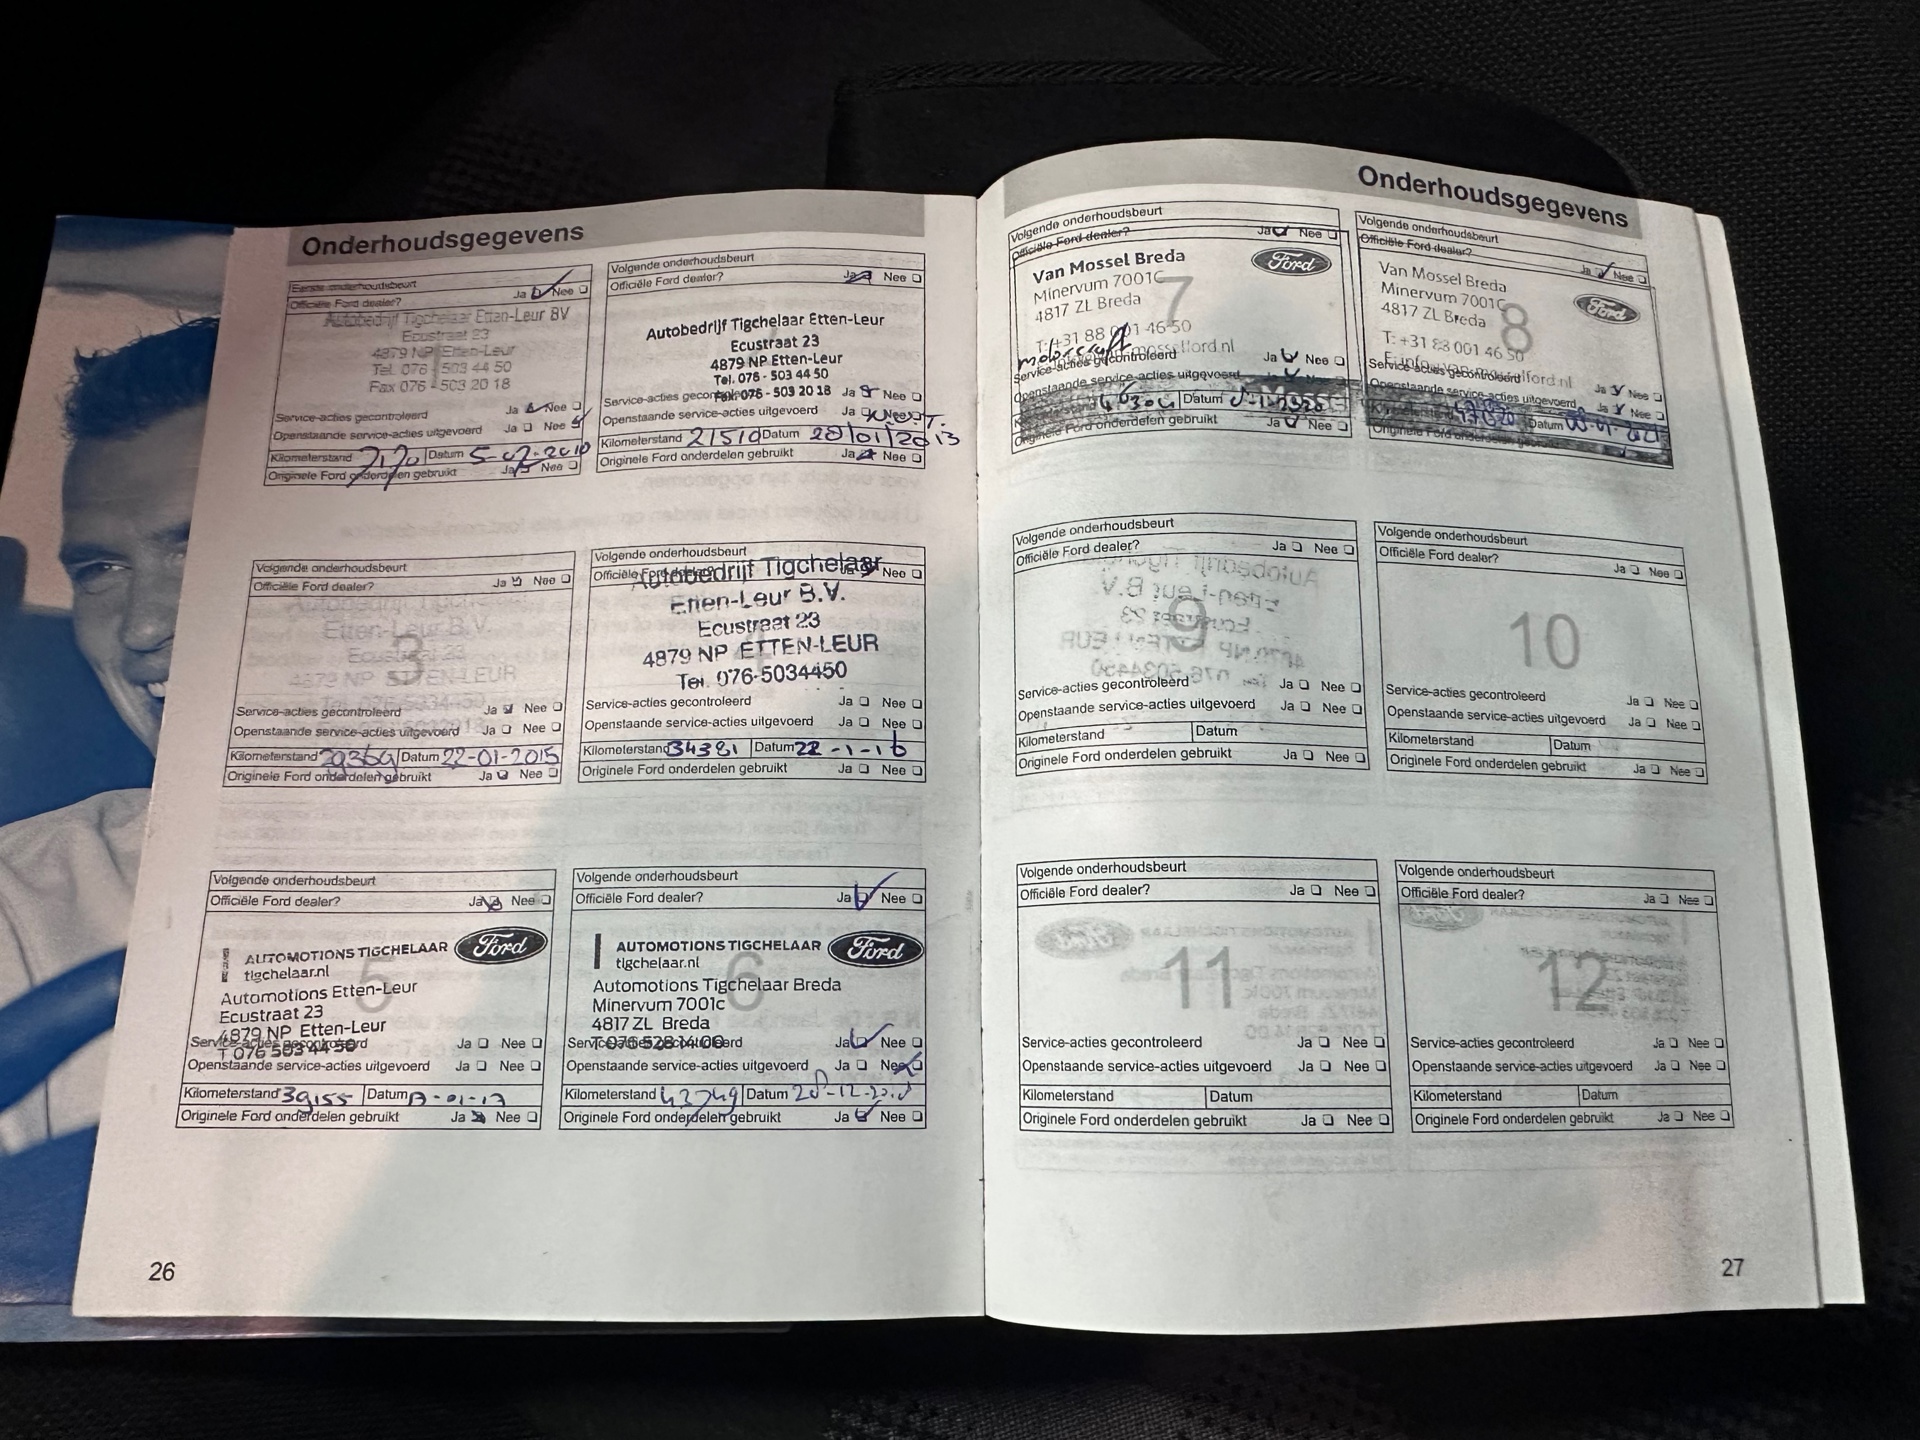 Onderhoudsgegevens
Eerste onderhoudsbeurt
Officiële Ford dealer? Ja Nee
Autobedrijf Tigchelaar Etten-Leur BV
Ecustraat 23
4879 NP Etten-Leur
Tel. 076 - 503 44 50
Fax 076 - 503 20 18
Service-acties gecontroleerd Ja Nee
Openstaande service-acties uitgevoerd Ja Nee
Kilometerstand Datum
Originele Ford onderdelen gebruikt Ja Nee
Volgende onderhoudsbeurt
Officiële Ford dealer? Ja Nee
Autobedrijf Tigchelaar Etten-Leur
Ecustraat 23
4879 NP Etten-Leur
Tel. 076 - 503 44 50
Fax: 076 - 503 20 18
Service-acties gecontroleerd Ja Nee
Openstaande service-acties uitgevoerd Ja Nee
Kilometerstand 21510 Datum 28/01/2013
Originele Ford onderdelen gebruikt Ja Nee
Volgende onderhoudsbeurt
Officiële Ford dealer? Ja Nee
3
Etten-Leur B.V.
Ecustraat 23
4879 NP ETTEN-LEUR
Service-acties gecontroleerd Ja Nee
Openstaande service-acties uitgevoerd Ja Nee
Kilometerstand 29369 Datum 22-01-2015
Originele Ford onderdelen gebruikt Ja Nee
Volgende onderhoudsbeurt
Officiële Ford dealer? Ja Nee
Autobedrijf Tigchelaar
Etten-Leur B.V.
Ecustraat 23
4
4879 NP ETTEN-LEUR
Tel. 076-5034450
Service-acties gecontroleerd Ja Nee
Openstaande service-acties uitgevoerd Ja Nee
Kilometerstand 34381 Datum 22-1-16
Originele Ford onderdelen gebruikt Ja Nee
Volgende onderhoudsbeurt
Officiële Ford dealer? Ja Nee
AUTOMOTIONS TIGCHELAAR Ford
tigchelaar.nl
5
Automotions Etten-Leur
Ecustraat 23
4879 NP Etten-Leur
T 076 503 44 50
Service-acties gecontroleerd Ja Nee
Openstaande service-acties uitgevoerd Ja Nee
Kilometerstand 39155 Datum
Originele Ford onderdelen gebruikt Ja Nee
Volgende onderhoudsbeurt
Officiële Ford dealer? Ja Nee
AUTOMOTIONS TIGCHELAAR Ford
tigchelaar.nl
6
Automotions Tigchelaar Breda
Minervum 7001c
4817 ZL Breda
T 076 528 14 00
Service-acties gecontroleerd Ja Nee
Openstaande service-acties uitgevoerd Ja Nee
Kilometerstand 43749 Datum
Originele Ford onderdelen gebruikt Ja Nee
26
Onderhoudsgegevens
Volgende onderhoudsbeurt
Officiële Ford dealer? Ja Nee
Van Mossel Breda Ford
Minervum 7001C
7
4817 ZL Breda
T: +31 88 001 46 50
motorcraft
Service-acties gecontroleerd Ja Nee
Openstaande service-acties uitgevoerd
Kilometerstand Datum
Originele Ford onderdelen gebruikt Ja Nee
Volgende onderhoudsbeurt
Officiële Ford dealer? Ja Nee
Van Mossel Breda
Minervum 7001C Ford
8
4817 ZL Breda
T: +31 88 001 46 50
Service-acties gecontroleerd Ja Nee
Openstaande service-acties uitgevoerd Ja Nee
Kilometerstand Datum
Originele Ford onderdelen gebruikt
Volgende onderhoudsbeurt
Officiële Ford dealer? Ja Nee
9
Service-acties gecontroleerd Ja Nee
Openstaande service-acties uitgevoerd Ja Nee
Kilometerstand Datum
Originele Ford onderdelen gebruikt Ja Nee
Volgende onderhoudsbeurt
Officiële Ford dealer? Ja Nee
10
Service-acties gecontroleerd Ja Nee
Openstaande service-acties uitgevoerd Ja Nee
Kilometerstand Datum
Originele Ford onderdelen gebruikt Ja Nee
Volgende onderhoudsbeurt
Officiële Ford dealer? Ja Nee
11
Service-acties gecontroleerd Ja Nee
Openstaande service-acties uitgevoerd Ja Nee
Kilometerstand Datum
Originele Ford onderdelen gebruikt Ja Nee
Volgende onderhoudsbeurt
Officiële Ford dealer? Ja Nee
12
Service-acties gecontroleerd Ja Nee
Openstaande service-acties uitgevoerd Ja Nee
Kilometerstand Datum
Originele Ford onderdelen gebruikt Ja Nee
27